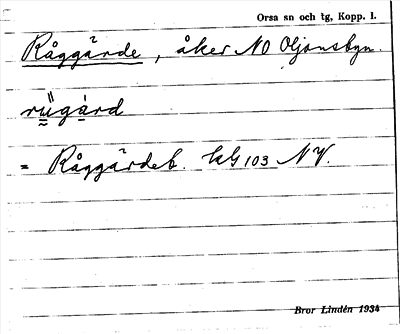 Orsa sn och tg, Kopp. l.
Råggärde, åker NO Oljonsbyn.
rǜgàrd
= Råggärdeb. kG 103 NV.
Bror Lindén 1934